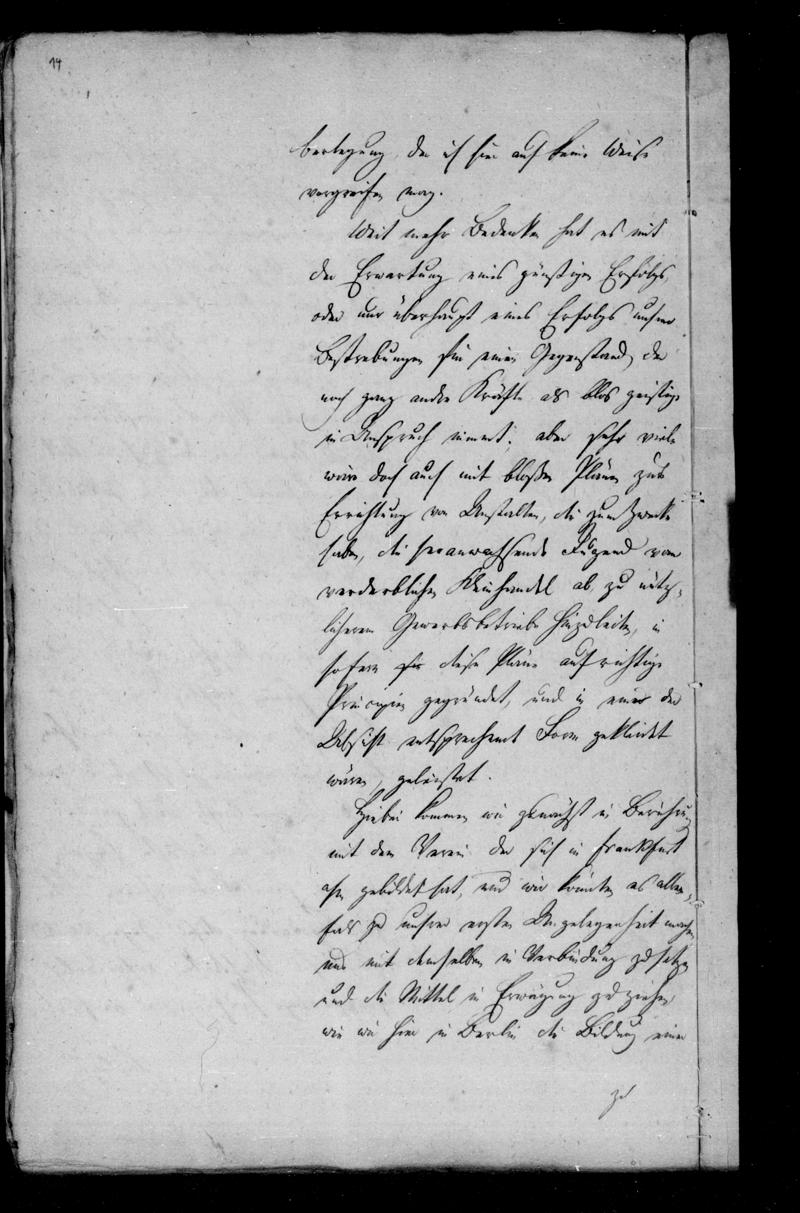 14
berlegung, der ich hier auf keine Weise
vorgreifen mag.
Weit mehr Bedenken hat es mit
der Erwartung eines günstigen Erfolgs,
oder nur überhaupt eines Erfolgs unsrer
Bestrebungen für einen Gegenstand, der
noch ganz andre Kräfte als blos geistige
in Anspruch nimmt; aber sehr viele
wäre doch auch mit bloßen Plänen zur
Errichtung von Anstalten, die zum Zwecke
haben, die heranwachsende Jugend vom
verderblichen Kleinhandel ab, zu nütz-
licherem Gewerbsbetriebe hinzuleiten, in
sofern diese Pläne auf richtige
Principien gegründet, und in einer der
Absicht entsprechend Form gekleidet
wären, geleistet.
Hiebei kommen wir zunächst in Berührung
mit dem Verein der sich in Frankfurt
gebildet hat, und wir könnten es allen-
falls zu unsrer ersten Angelegenheit machen
uns mit demselben in Verbindung zu setzen
und die Mittel in Erwägung zu ziehen,
wie wir hier in Berlin die Bildung eines
zu